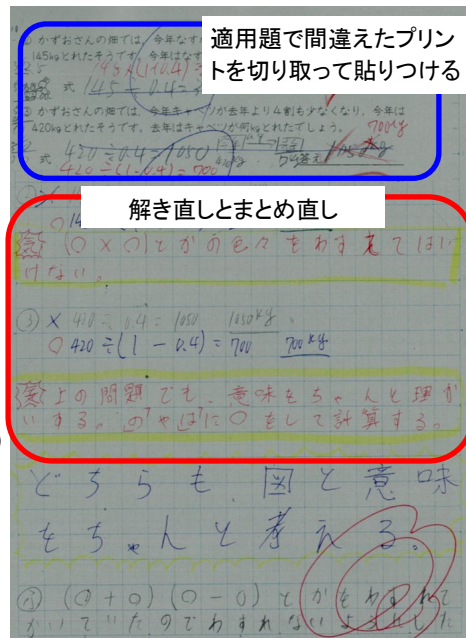 適用題で間違えたプリン
トを切り取って貼りつける
かずおさんの畑では、今年なす
145kgとれたそうです。今年はなす
145×(1-0.4)
式 145-0.4=
③ かずおさんの畑では、今年キャベツが去年より4割も少なくなり、今年は
420kgとれたそうです。去年はキャベツが何kgとれたでしょう。
700kg
式 420÷0.4=1050
420÷(1-0.4)=700
答え 1050kg
解き直しとまとめ直し
(○×○)とかの色々をわすれてはい
けない。
③ × 420÷0.4=1050 1050kg
○ 420÷(1-0.4)=700 700kg
上の問題でも、意味をちゃんと理か
いする。「の」や「は」に○をして計算する。
どちらも、図と意味
をちゃんと考える。
(○+○)(○-○)とかをわすれて
かいていたのでわすれないようにした